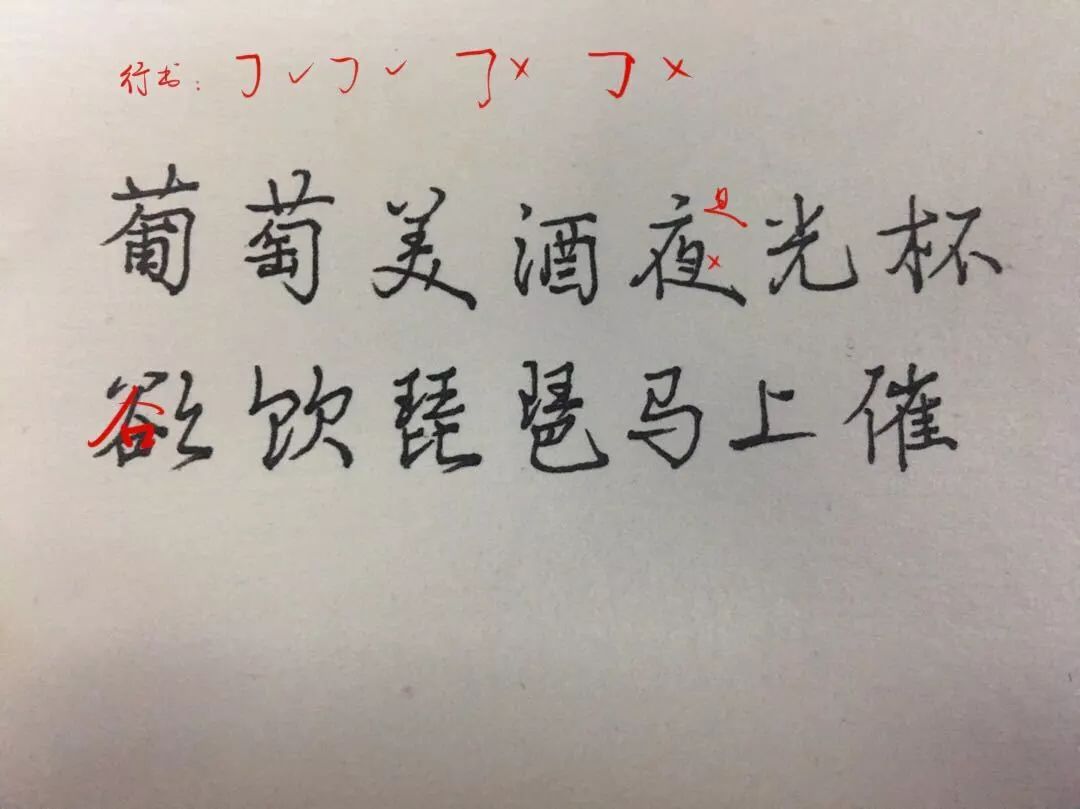 行书：
葡萄美酒夜光杯
欲饮琵琶马上催